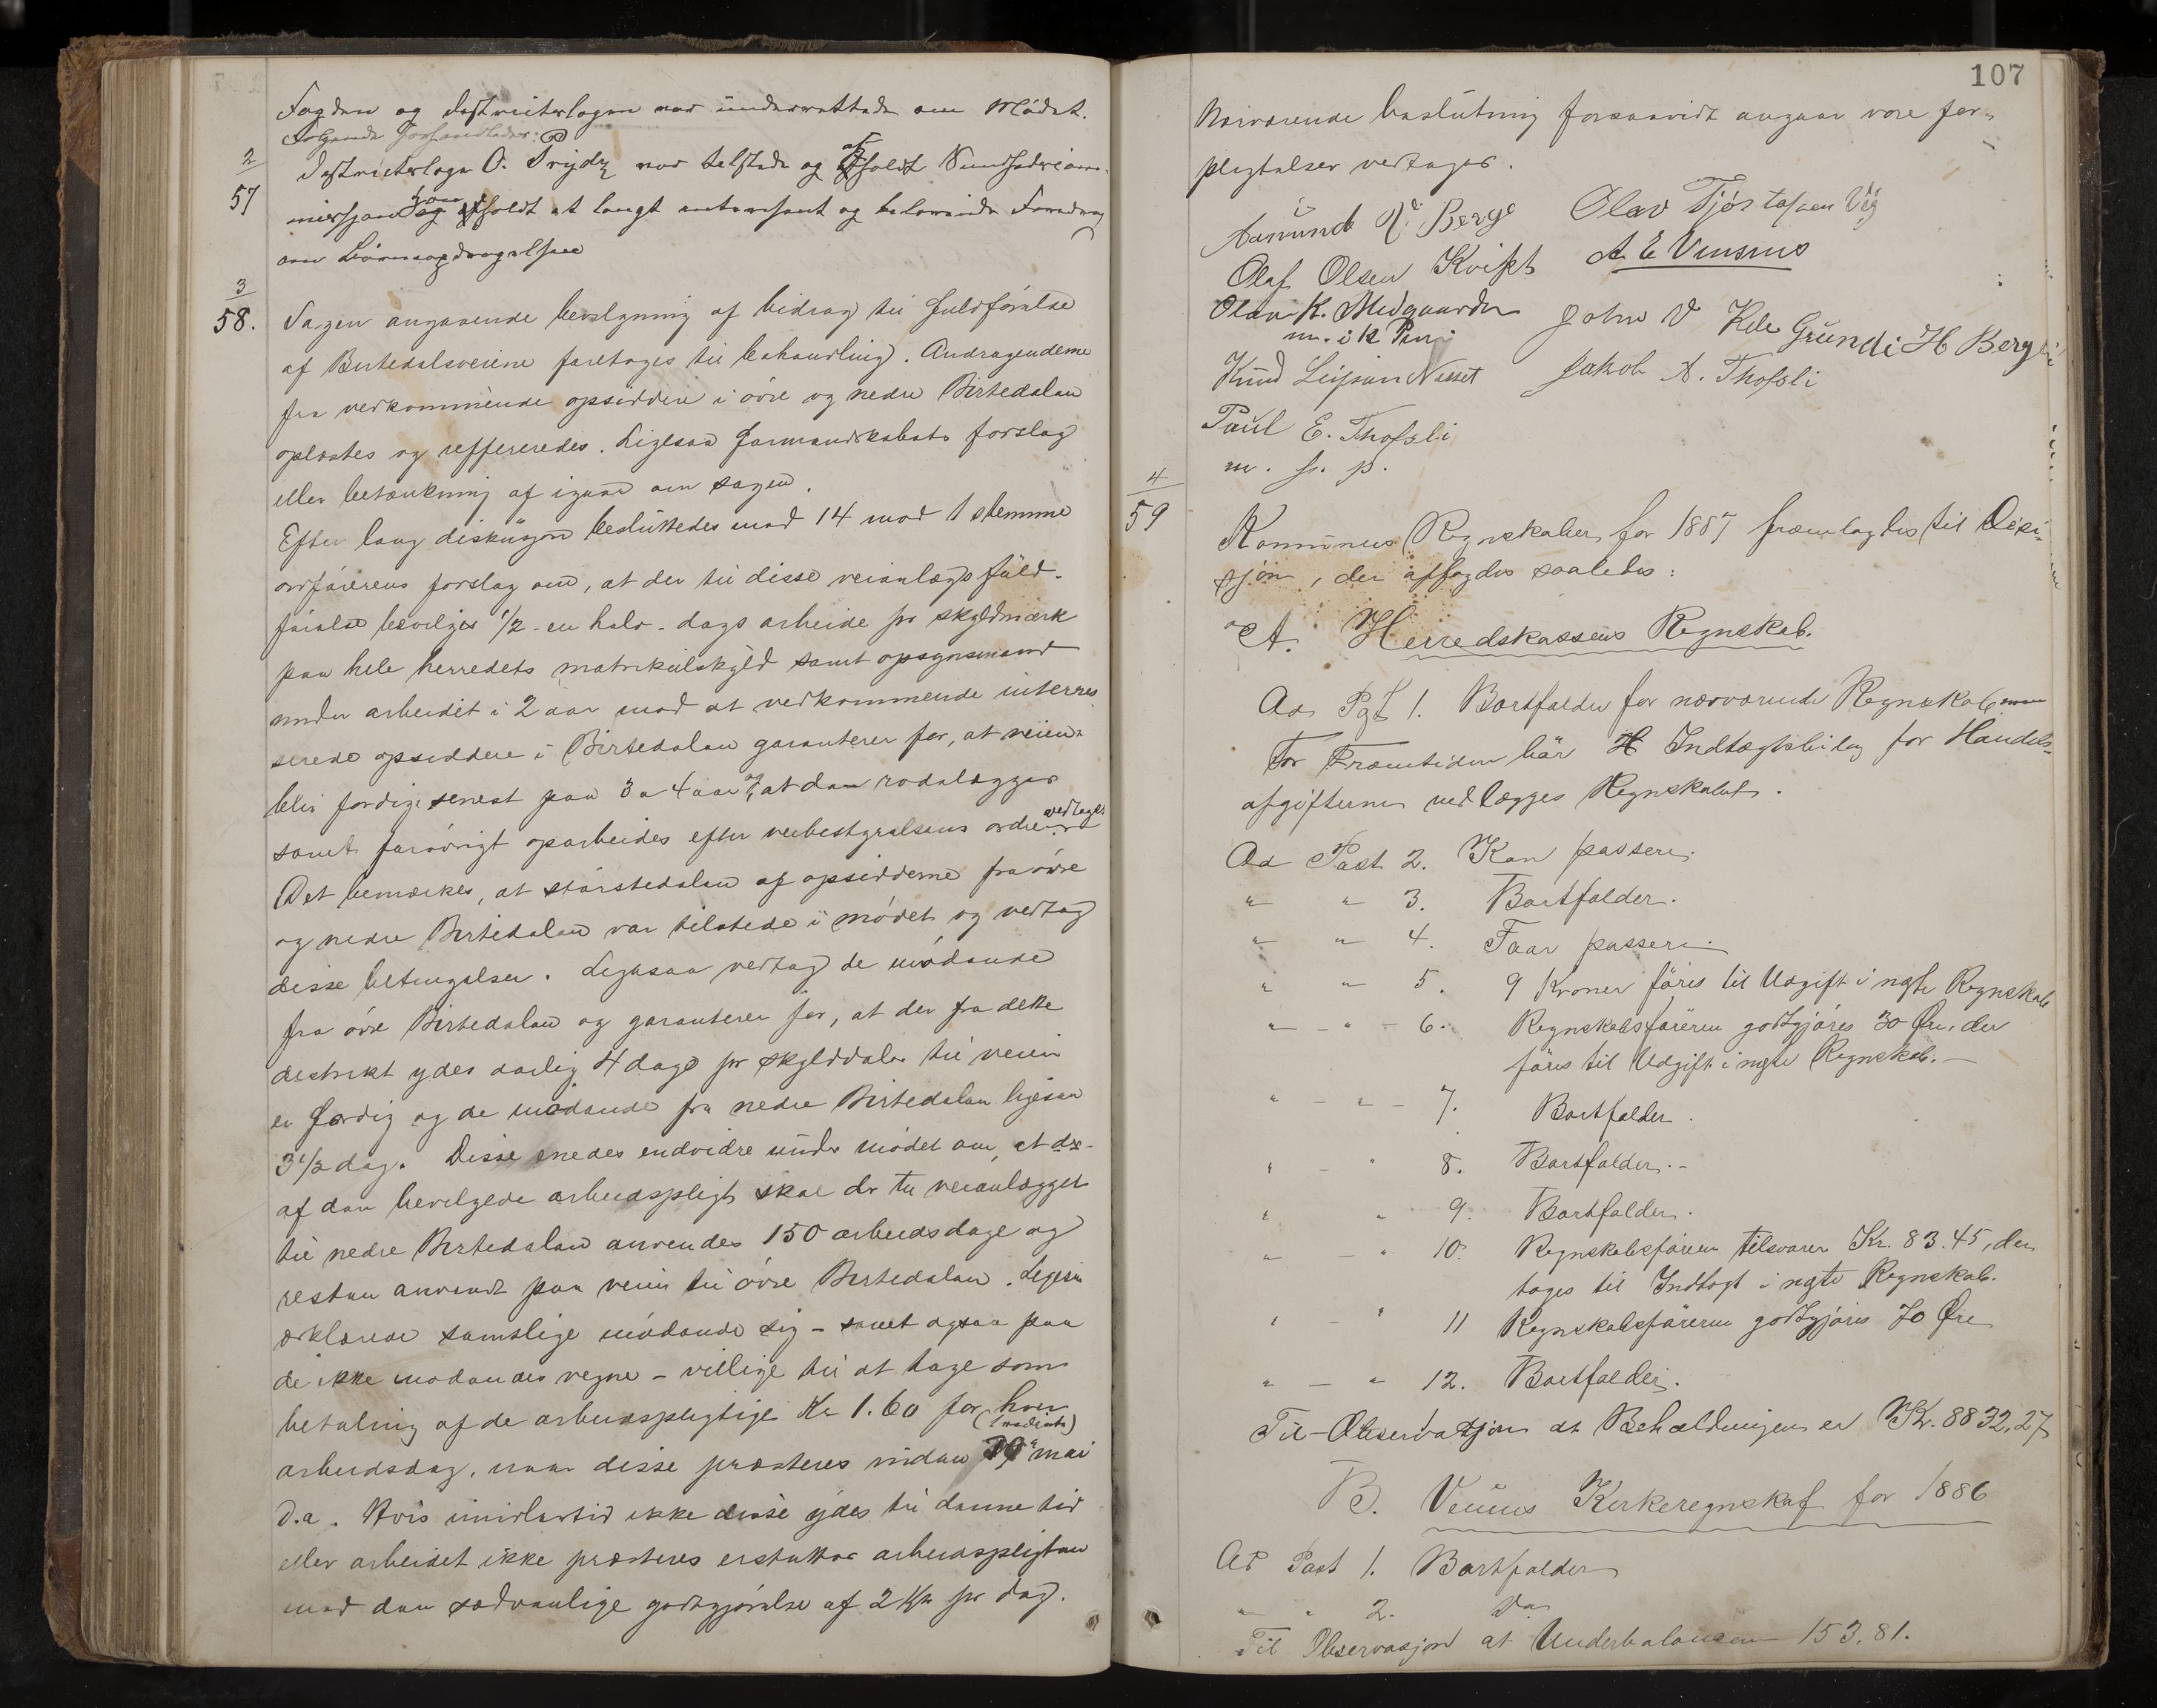 Fogden og Distriktslægen var underrettede om Mødet.
Følgende Forhandledes:
2
57
Distriktslæge O. Trydz var tilstede og afholdt Sundhedscom-
misjon og holdt et langt interessant og belærende Foredrag
om
3
58.
Sagen angaaende bevilgning af bidrag til fuldførelse
af Birtedalsveiene foretoges til behandling. Andragenderne
fra vedkommende opsiddere i øvre og nedre Birtedalen
oplæstes og reffereredes. Ligesaa formandskabets forslag
eller betænkning af igaar om sagen.
Efter lang diskusjon besluttedes med 14 mod 1 stemme
ordførerens forslag om, at der til disse veianlægs fuld-
førelse bevilges 1/2 - en halv - dags arbeide pr skyldmark
paa hele herredets matrikulskyld samt opsynsmand
under arbeidet i 2 aar mod at vedkommende interres-
serede opsiddere i Birtedalen garanterer for, at veien
blir færdig senest paa 3 a 4 aar, at den rodelægges
samt forøvrigt oparbeides efter veibestyrelsens ordre. vedtaget
Det bemærkes, at størstedelen af opsidderne fra øvre
og nedre Birtedalen var tilstede i mødet og vedtog
disse betingelser. Ligesaa vedtog de mødende
fra øvre Birtedalen og garanterer for, at der fra dette
destrikt ydes aarlig 4 dage pr skylddaler til veien
er færdig og de mødende fra nedre Birtedalen ligesaa
3 1/2 dag. Disse enedes endvidre under mødet om, at der
af den bevilgede arbeidspligt skal der til veianlægget
til nedre Birtedalen anvendes 150 arbeidsdage og
resten anvendt paa veien til øvre Birtedalen. Ligesaa
erklærede samtlige mødende sig - samt ogsaa paa
de ikke mødendes vegne - villige til at tage som
betaling af de arbeidspligtige Kr 1.60 for hver
(moderate)
arbeidsdag, naar disse præsteres inden mai
d.a. Hvis imidlertid ikke disse ydes til denne tid
eller arbeidet ikke præsteres erstatter arbeidspligten
med den sædvanlige godtgjørelse af 2 Kr pr dag.
107
Nærværende beslutning forsaavidt angaar vore for-
pligtelser vedtages.
Aasmund Berge Olav Tjøstolfsen Vig
Olaf Olsen Kvist A E Vinsnus
Olav K. Midgaarden John V Kile Grundi H Bergli
m. i k Pen
Knud Leifsen Nesset Jakob A. Thofsli
Paul E. Thofsli
m. f. p.
4
59
Komunens Regnskaber for 1887 fræmlagdes til Desi-
sjon, der affagdes saaledes:
A. Herredskassens Regnskab.
Ad Pgt 1. Bortfalder for nærværende Regnskab men
for Fræmtiden bør Indtægtsbilag for Handels-
afgifterne vedlægges Regnskabet.
Ad Post 2. Kan passere.
" " 3. Bortfalder.
" " 4. Faar passere.
" " 5. 9 Kroner føres til Udgift i ngte Regnskab
" - " - 6. Regnskabsføreren godtgjøres 30 Øre, der
føres til Udgift i ngte Regnskab. -
" - " - 7. Bortfalder.
" - " 8. Bortfalder. -
" " 9. Bortfalder.
" - " 10. Regnskabsføreren tilsvarer Kr. 83.45, der
tages til Indtægt i ngte Regnskab.
" - " 11 Regnskabsføreren godtgjøres 70 Øre
" - " 12. Bortfalder.
Til Observasjon at Beholdningen er Kr. 8832,27
B. Veums Kirkeregnskab for 1886
Ad Post 1. Bortfalder
" " 2. Do
Til Observasjon at Underbalansen 153,81.